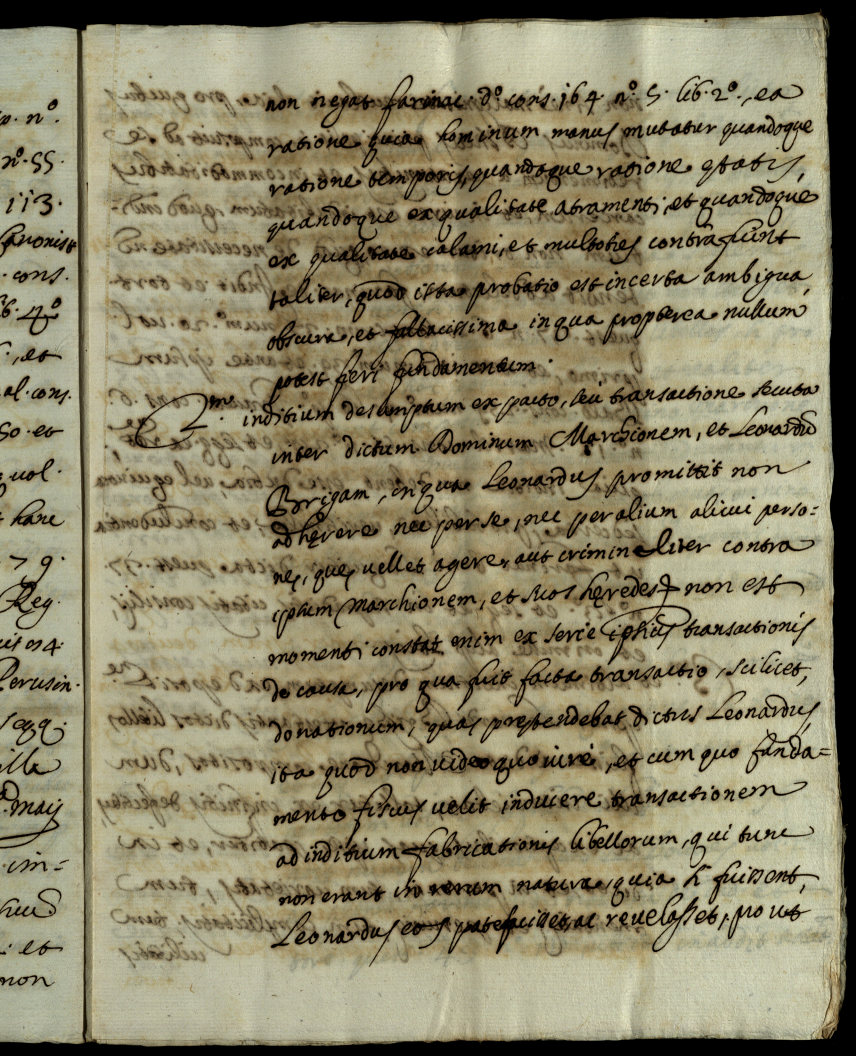 p. nº.
nº. 55.
113.
Canonist
. cons.
4º
., et
al. cons.
50. et
vol.
t hanc
79.
Reg.
Perusin.
seqq.
ille
maij
im=
. et
non
non negat farinac. dº. cons. 164. nº. 5. lib. 2º., ea
ratione quia hominum manus mutatur quandoque
ratione temporis, quandoque ratione ętatis,
quandoque ex qualitate atramenti, et quandoque
ex qualitate calami, et multoties contrafiunt
taliter, quod ista probatio est incerta ambigua,
obscura, et fallacissima in qua propterea nullum
potest fieri fundamentum.
2.m inditium desumptum ex pacto, seu transactione secuta
inter dictum Dominum Marchionem, et Leonardũ
Brigam, in qua Leonardus promittit non
adhęrere nec per se, nec per alium alicui perso=
nę, quę vellet agere, aut criminaliter contra
ipsum Marchionem, et suos hęredes non est
momenti constat enim ex serie ipsius transactionis
de causa, pro qua fuit facta transactio, scilicet,
donationum, quas prętendebat dictus Leonardus,
ita quod non video quo iure, et cum quo funda=
mento fiscus velit inducere transactionem
ad inditium fabricationis libellorum, qui tunc
non erant in rerum natura, quia si fuissent,
Leonardus eos patefecisset, ac revelasset, prout